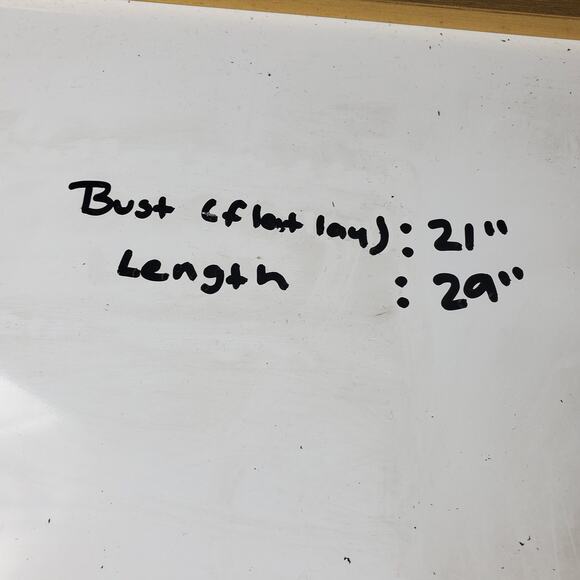 Bust (flat lay): 21"
Length : 29"